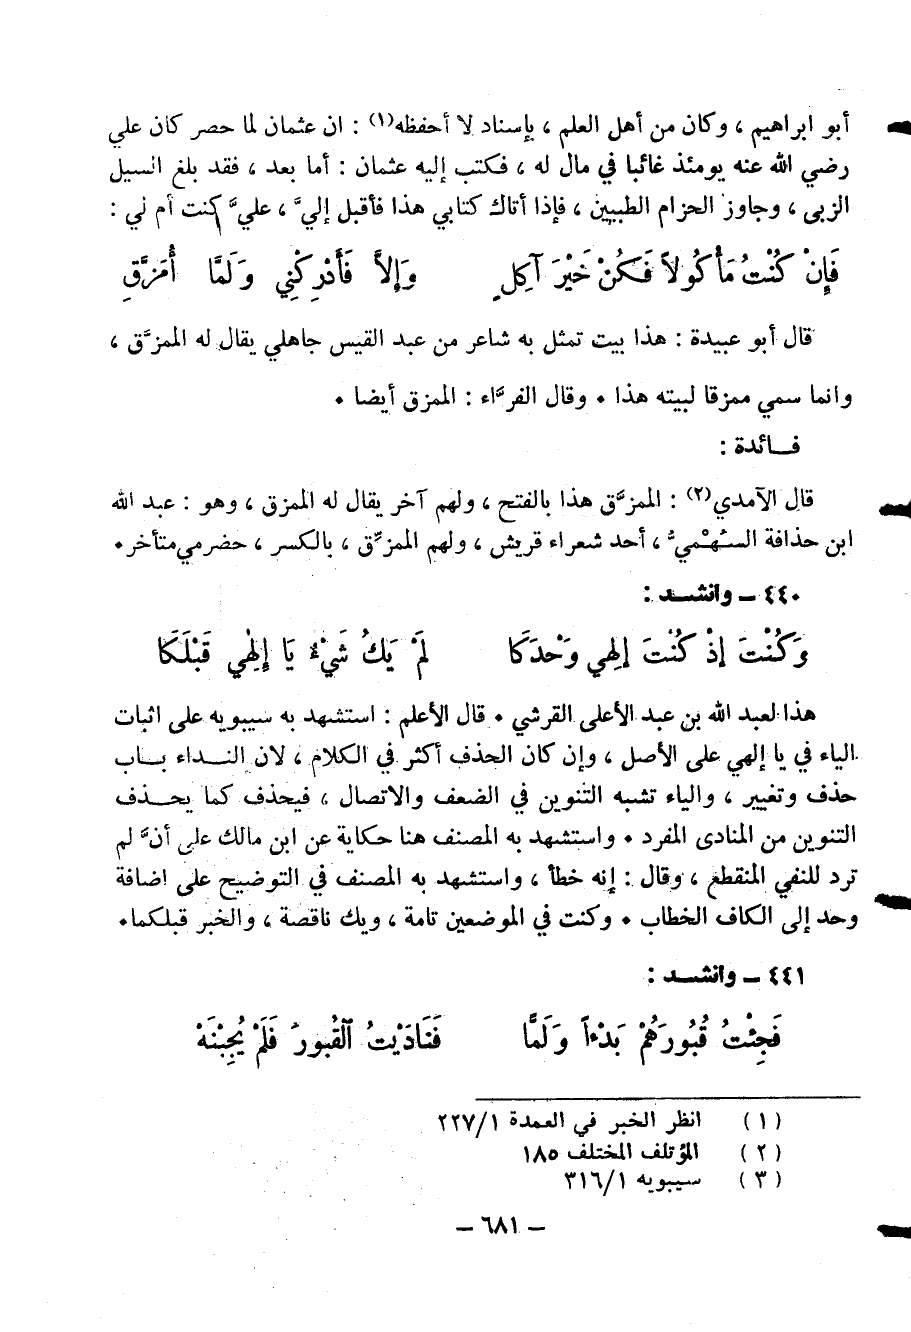 أبو ابراهيم ، وكان من أهل العلم ، بإسناد لا أحفظه(١) : ان عثمان لما حصر كان علي
رضي الله عنه يومئذ غائبا في مال له ، فكتب إليه عثمان : أما بعد ، فقد بلغ السيل
الزبى ، وجاوز الحزام الطبيين ، فإذا أتاك كتابي هذا فأقبل إليّ ، عليّ كنت أم لي :
فَإِنْ كُنْتُ مَأْكُولاً فَكُنْ خَيْرَ آكِلٍ وَإِلاَّ فَأَدْرِكْنِي وَلَمَّا أُمَزَّقِ
قال أبو عبيدة : هذا بيت تمثل به شاعر من عبد القيس جاهلي يقال له الممزَّق ،
وانما سمي ممزقا لبيته هذا • وقال الفرَّاء : الممزق أيضا •
فــائدة :
قال الآمدي(٢) : الممزَّق هذا بالفتح ، ولهم آخر يقال له الممزق ، وهو : عبد الله
ابن حذافة السَّهْمِيُّ ، أحد شعراء قريش ، ولهم الممزِّق ، بالكسر ، حضرمي متأخر•
٤٤٠ ـ وانشــد :
وَكُنْتَ إِذْ كُنْتَ إِلهِي وَحْدَكَا لَمْ يَكُ شَيْءٌ يَا إِلهِي قَبْلَكَا
هذا لعبد الله بن عبد الأعلى القرشي • قال الأعلم : استشهد به سيبويه على اثبات
الياء في يا إلهي على الأصل ، وإن كان الحذف أكثر في الكلام ، لان النــداء بــاب
حذف وتغيير ، والياء تشبه التنوين في الضعف والاتصال ، فيحذف كما يحــذف
التنوين من المنادى المفرد • واستشهد به المصنف هنا حكاية عن ابن مالك على أنَّ لم
ترد للنفي المنقطع ، وقال : إنه خطأ ، واستشهد به المصنف في التوضيح على اضافة
وحد إلى الكاف الخطاب • وكنت في الموضعين تامة ، ويك ناقصة ، والخبر قبلكما•
٤٤١ ـ وانشــد :
فَجِئْتُ قُبُورَهُمْ بَدْءاً وَلَمَّا فَنَادَيْتُ القُبورَ فَلَمْ يُجِبْنَهْ
(١) انظر الخبر في العمدة ٢٢٧/١
(٢) المؤتلف المختلف ١٨٥
(٣) سيبويه ٣١٦/١
ـ ٦٨١ ـ